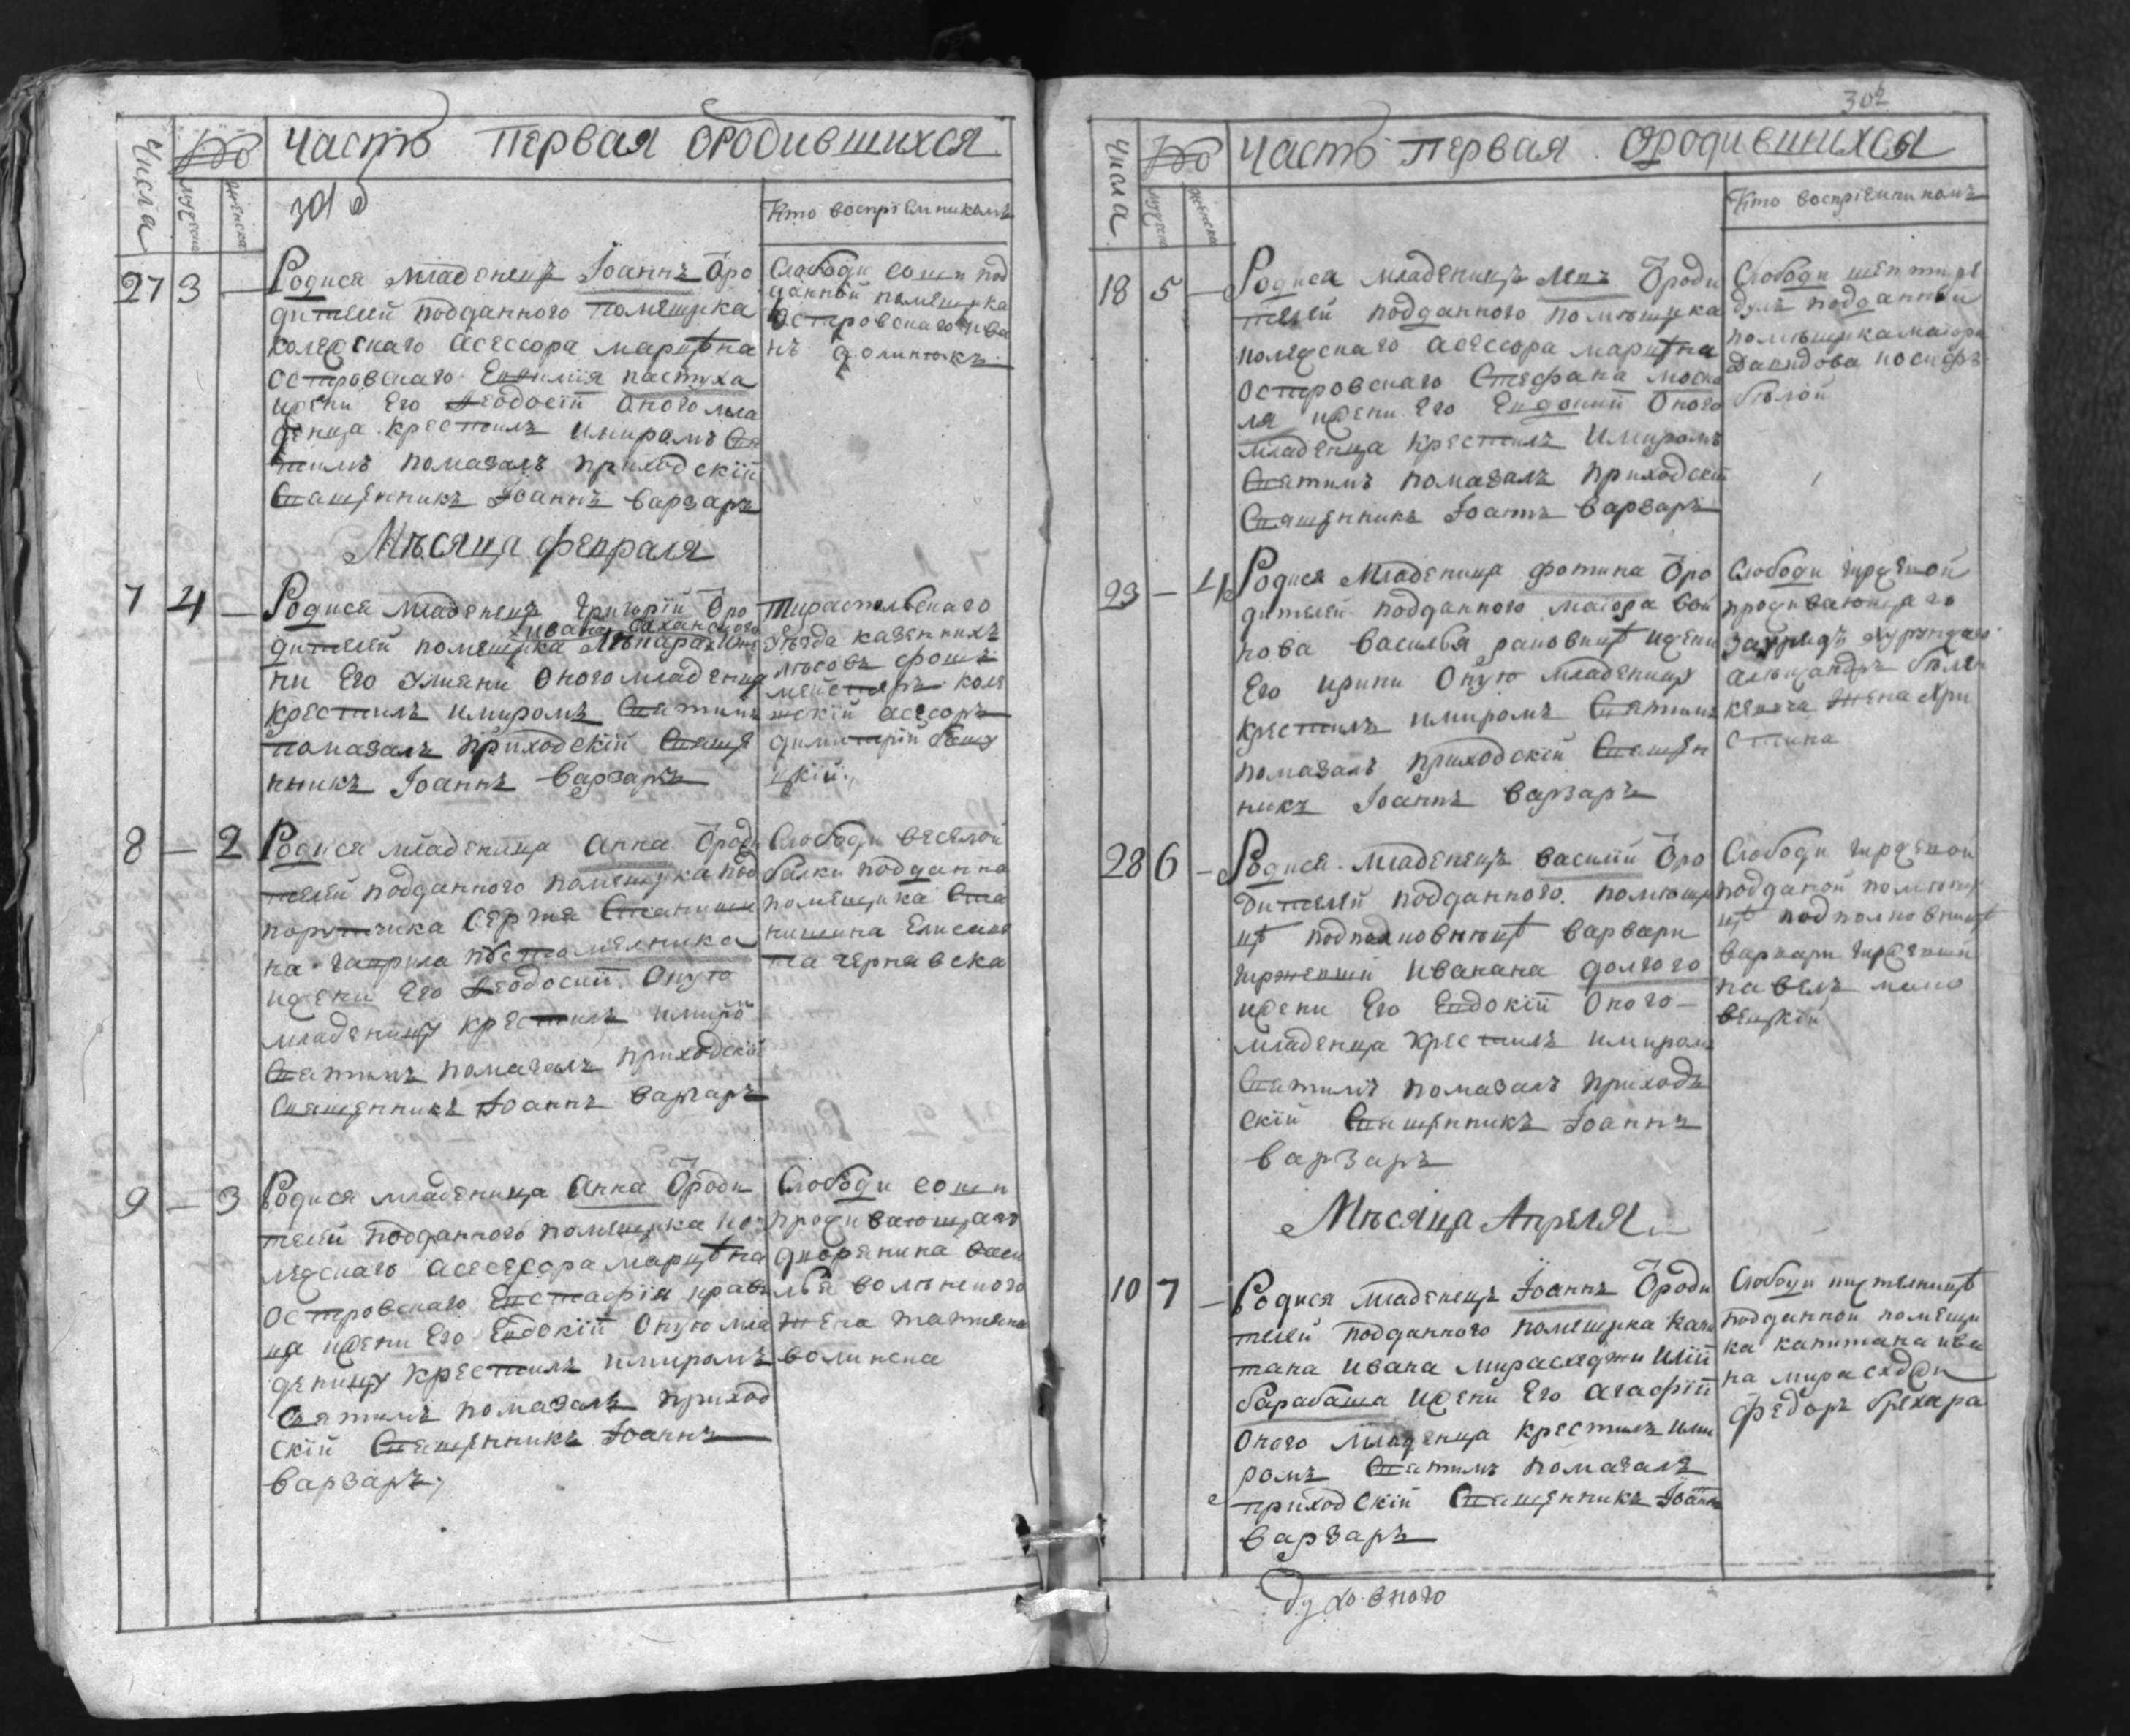 Числа
мужеска
женска
часть первая ородившихся
Кто воспріемникомъ
27 3 —
Родися младенецъ Іоаннъ Ѿро
дителей подданного помещика
колежскаго асессора мартина
островскаго Евфимія пастуха
ижени Его Ѳеодосіи Оного мла
денца крестилъ имиромъ Свя
тимъ помазалъ приходскій
Священникъ Іоаннъ варзаръ
Слободи сошки под
данный помещика
островскаго ива
нъ
Мѣсяца февраля
7 4 —
Родися младенецъ григорій Ѿро
ивана
дителей помещика иже
ни Его улияни Оного младенца
крестилъ имиромъ Святимъ
помазалъ приходскій Свяще
нникъ Іоаннъ варзаръ
Тираспольскаго
уезда казеннихъ
лѣсовъ форшъ
мейстеръ коле
жскій асесоръ
димитрій
цкій
8 — 2
Родися младеница Анна Ѿроди
телей подданного помещика под
порутчика Сергия Станиши
на гаврила пустомелника
ижени Его Ѳеодосии Оную
младеницу крестилъ имиро
Святимъ помазалъ приходскій
Священникъ Іоаннъ варзаръ
Слободи веселой
балки подданна
помещика Ста
нишина Елисаве
та чернявска
9 — 3
Родися младеница Анна Ѿроди
телей подданного помещика ко
лежскаго асессора мартина
островскаго Евстафія крав
ца ижени Его Евдокіи Оную мла
деницу крестилъ имиромъ
Святимъ помазалъ приход
скій Священникъ Іоаннъ
варзаръ
Слободи сошки
проживающаго
дворянина васи
лья волинского
жена татияна
волинска
302
Числа
мужеска
женска
часть первая ородившихся
Кто воспріемникомъ
18 5 —
Родися младенецъ левъ Ѿроди
телей подданного помѣщика
колежскаго асессора мартина
островскаго Стефана моска
ля ижени Его Евдокии Оного
младенца крестилъ имиромъ
Святимъ помазалъ приходскій
Священникъ Іоаннъ варзаръ
Слободи
подданный
помѣщика маиора
Давидова иосифъ
бѣлой
23 — 4
Родися младеница фотина Ѿро
дителей подданного маиора вои
нова василья ижени
Его ирини Оную младеницу
крестилъ имиромъ Святимъ
помазалъ приходскій Священ
никъ Іоаннъ варзаръ
Слободи гиржевой
проживающаго
жена хри
стина
28 6 —
Родися младенецъ василій Ѿро
дителей подданного помѣщи
цѣ подполковницѣ варвари
гиржевши ивана долгого
ижени Его Евдокій Оного
младенца крестилъ имиромъ
Святимъ помазалъ приход
скій Священникъ Іоаннъ
варзаръ
Слободи гиржевой
подданой помѣщи
цѣ подполковницѣ
варвари гиржевши
павелъ
Мѣсяца Апреля
10 7 —
Родися младенецъ Іоаннъ Ѿроди
телей подданного помещика капи
тана ивана мирасходжи иліи
барабаша ижени Его агафіи
Оного младенца крестилъ ими
ромъ Святимъ помазалъ
приходскій Священникъ Іоаннъ
варзаръ
Слободи
подданной помещи
ка капитана ива
на мирасходжи
федоръ брехара
духовного